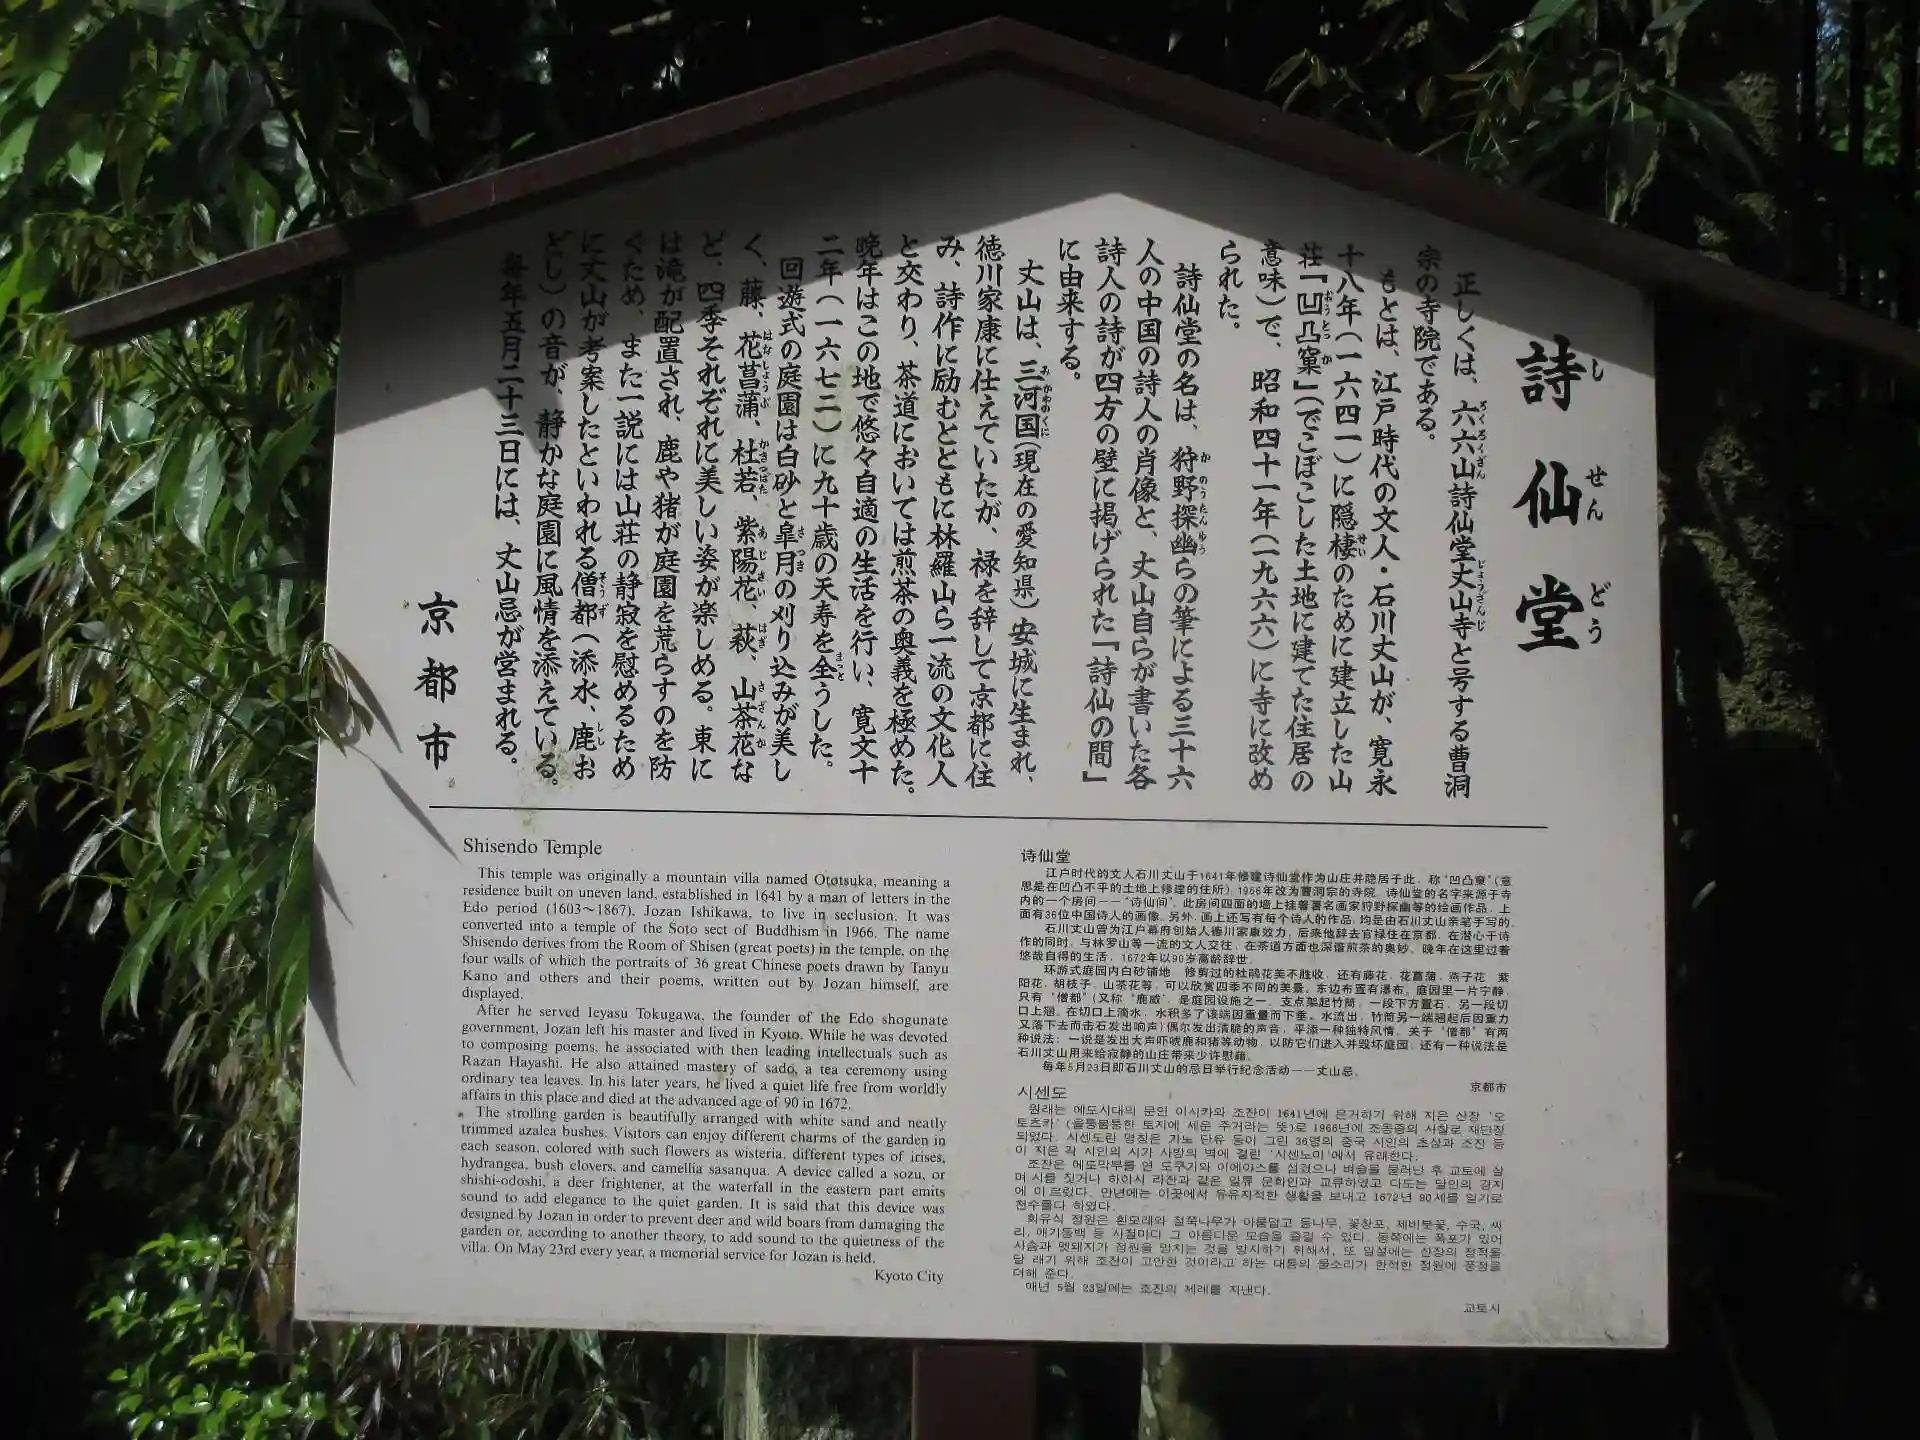 詩仙堂
正しくは、六六山詩仙堂丈山寺と号する曹洞
宗の寺院である。
もとは、江戸時代の文人・石川丈山が、寛永
十八年(一六四一)に隠棲のために建立した山
荘『凹凸窠』(でこぼこした土地に建てた住居の
意味)で、昭和四十一年(一九六六)に寺に改め
られた。
詩仙堂の名は、狩野探幽らの筆による三十六
人の中国の詩人の肖像と、丈山自らが書いた各
詩人の詩が四方の壁に掲げられた「詩仙の間」
に由来する。
丈山は、三河国(現在の愛知県)安城に生まれ、
徳川家康に仕えていたが、禄を辞して京都に住
み、詩作に励むとともに林羅山ら一流の文化人
と交わり、茶道においては煎茶の奥義を極めた。
晩年はこの地で悠々自適の生活を行い、寛文十
二年(一六七二)に九十歳の天寿を全うした。
回遊式の庭園は白砂と皐月の刈り込みが美し
く、藤、花菖蒲、杜若、紫陽花、萩、山茶花な
ど、四季それぞれに美しい姿が楽しめる。東に
は滝が配置され、鹿や猪が庭園を荒らすのを防
ぐため、また一説には山荘の静寂を慰めるため
に丈山が考案したといわれる僧都(添水、鹿お
どし)の音が、静かな庭園に風情を添えている。
毎年五月二十三日には、丈山忌が営まれる。
京都市
Shisendo Temple
This temple was originally a mountain villa named Ototsuka, meaning a
residence built on uneven land, established in 1641 by a man of letters in the
Edo period (1603～1867), Jozan Ishikawa, to live in seclusion. It was
converted into a temple of the Soto sect of Buddhism in 1966. The name
Shisendo derives from the Room of Shisen (great poets) in the temple, on the
four walls of which the portraits of 36 great Chinese poets drawn by Tanyu
Kano and others and their poems, written out by Jozan himself, are
displayed.
After he served Ieyasu Tokugawa, the founder of the Edo shogunate
government, Jozan left his master and lived in Kyoto. While he was devoted
to composing poems, he associated with then leading intellectuals such as
Razan Hayashi. He also attained mastery of sado, a tea ceremony using
ordinary tea leaves. In his later years, he lived a quiet life free from worldly
affairs in this place and died at the advanced age of 90 in 1672.
The strolling garden is beautifully arranged with white sand and neatly
trimmed azalea bushes. Visitors can enjoy different charms of the garden in
each season, colored with such flowers as wisteria, different types of irises,
hydrangea, bush clovers, and camellia sasanqua. A device called a sozu, or
shishi-odoshi, a deer frightener, at the waterfall in the eastern part emits
sound to add elegance to the quiet garden. It is said that this device was
designed by Jozan in order to prevent deer and wild boars from damaging the
garden or, according to another theory, to add sound to the quietness of the
villa. On May 23rd every year, a memorial service for Jozan is held.
Kyoto City
诗仙堂
江户时代的文人石川丈山于1641年修建诗仙堂作为山庄并隐居于此，称“凹凸窠”(意
思是在凹凸不平的土地上修建的住所)，1966年改为曹洞宗的寺院。诗仙堂的名字来源于寺
内的一个房间——“诗仙间”，此房间四面的墙上挂着著名画家狩野探幽等的绘画作品，上
面有36位中国诗人的画像，另外，画上还写有每个诗人的作品，均是由石川丈山亲笔手写的。
石川丈山曾为江户幕府创始人德川家康效力，后来他辞去官禄住在京都，在潜心于诗
作的同时，与林罗山等一流的文人交往，在茶道方面也深谙煎茶的奥妙。晚年在这里过着
悠哉自得的生活，1672年以90岁高龄辞世。
环游式庭园内白砂铺地，修剪过的杜鹃花美不胜收，还有藤花，花菖蒲，燕子花，紫
阳花，胡枝子，山茶花等，可以欣赏四季不同的美景。东边布置有瀑布，庭园里一片宁静，
只有“僧都”(又称“鹿威”，是庭园设施之一，支点架起竹筒，一段下方置石，另一段切
口上翘。在切口上滴水，水积多了该端因重量而下垂。水流出，竹筒另一端翘起后因重力
又落下去而击石发出响声)偶尔发出清脆的声音，平添一种独特风情。关于“僧都”有两
种说法：一说是发出大声吓唬鹿和猪等动物，以防它们进入并毁坏庭园，还有一种说法是
石川丈山用来给寂静的山庄带来少许慰藉。
每年5月23日即石川丈山的忌日举行纪念活动——丈山忌。
京都市
시센도
원래는 에도시대의 문인 이시카와 조잔이 1641년에 은거하기 위해 지은 산장 '오
토츠카' (울퉁불퉁한 토지에 세운 주거라는 뜻)로 1966년에 조동종의 사찰로 재단장
되었다. 시센도란 명칭은 가노 단유 등이 그린 36명의 중국 시인의 초상과 조잔 등
이 지은 각 시인의 시가 사방의 벽에 걸린 '시센노마'에서 유래한다.
조잔은 에도막부를 연 도쿠가와 이에야스를 섬겼으나 벼슬을 물러난 후 교토에 살
며 시를 짓거나 하야시 라잔과 같은 일류 문화인과 교류하였고 다도는 달인의 경지
에 이르렀다. 만년에는 이곳에서 유유자적한 생활을 보내고 1672년 90세를 일기로
천수를다 하였다.
회유식 정원은 흰모래와 철쭉나무가 아름답고 등나무, 꽃창포, 제비붓꽃, 수국, 싸
리, 애기동백 등 사철마다 그 아름다운 모습을 즐길 수 있다. 동쪽에는 폭포가 있어
사슴과 멧돼지가 정원을 망치는 것을 방지하기 위해서, 또 일설에는 산장의 정적을
달 래기 위해 조잔이 고안한 것이라고 하는 대통의 물소리가 한적한 정원에 풍정을
더해 준다.
매년 5월 23일에는 조잔의 제례를 지낸다.
교토시